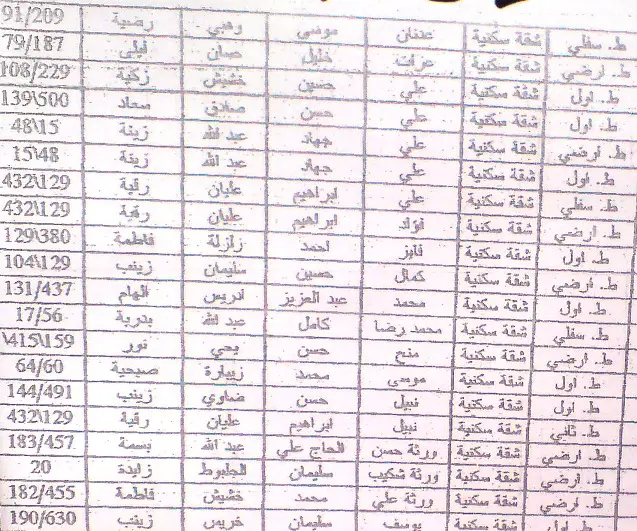 ط. سفلي شقة سكنية عدنان موسى وهبي رضية 91/209
ط. ارضي شقة سكنية عزات خليل حسان ليلى 79/187
ط. اول شقة سكنية علي حسين خشيش زكية 108/229
ط. اول شقة سكنية علي حسن صادق سعاد 139\500
ط. ارضي شقة سكنية علي جهاد عبد الله زينة 48\15
ط. اول شقة سكنية علي جهاد عبد الله زينة 15\48
ط. سفلي شقة سكنية علي ابراهيم عليان رقية 432\129
ط. ارضي شقة سكنية فؤاد ابراهيم عليان رقية 432\129
ط. اول شقة سكنية فايز احمد زلزلة فاطمة 129\380
ط. ارضي شقة سكنية كمال حسين سليمان زينب 104\129
ط. اول شقة سكنية محمد عبد العزيز ادريس الهام 131/437
ط. سفلي شقة سكنية محمد رضا كامل عبد الله بدرية 17/56
ط. ارضي شقة سكنية منح حسن يحي نور \415\159
ط. اول شقة سكنية موسى محمد زيبارة صبحية 64/60
ط. اول شقة سكنية نبيل حسن ضاوي زينب 144/491
ط. ثاني شقة سكنية نبيل ابراهيم عليان رقية 432\129
ط. ارضي شقة سكنية ورثة حسن الحاج علي عبد الله بسمة 183/457
ط. ارضي شقة سكنية ورثة شكيب سليمان الجلبوط زايدة 20
ط. ارضي شقة سكنية ورثة علي محمد خشيش فاطمة 182/455
ط. اول شقة سكنية يوسف سليمان خريس زينب 190/630